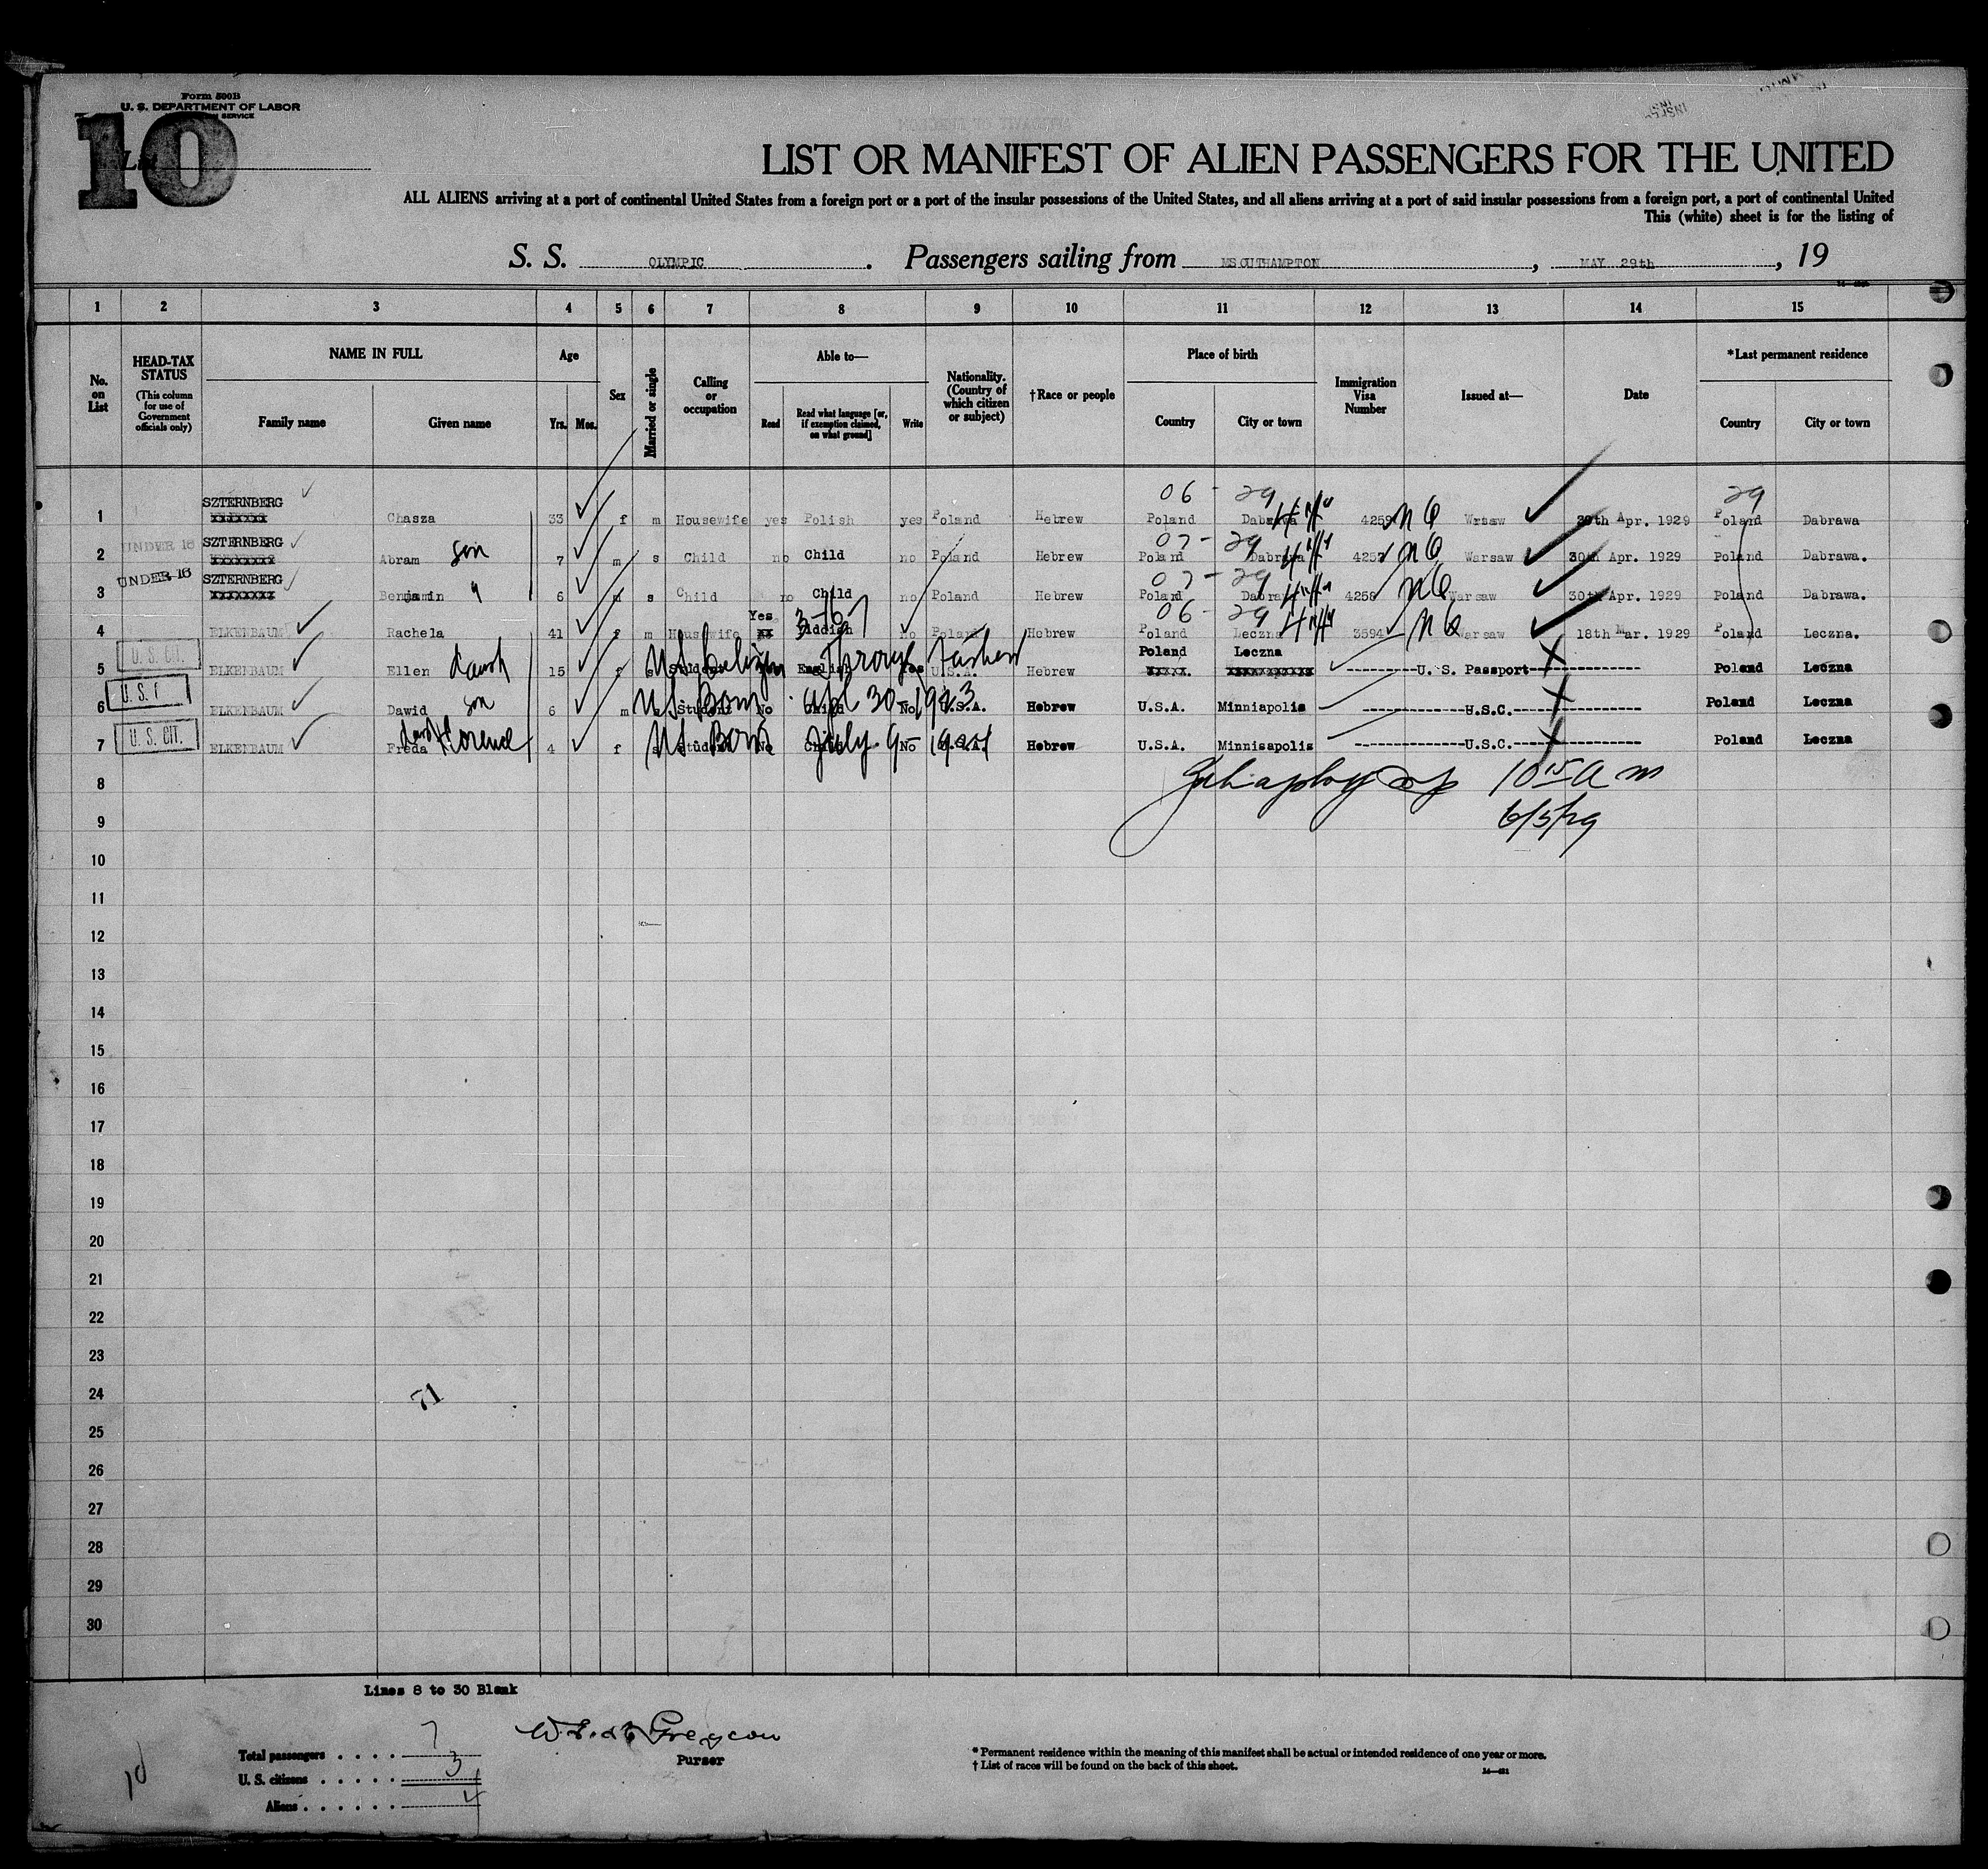 Form 500B
U. S. DEPARTMENT OF LABOR
SERVICE
10
List
LIST OR MANIFEST OF ALIEN PASSENGERS FOR THE UNITED
ALL ALIENS arriving at a port of continental United States from a foreign port or a port of the insular possessions of the United States, and all aliens arriving at a port of said insular possessions from a foreign port, a port of continental United
This (white) sheet is for the listing of
S. S. OLYMPIC. Passengers sailing from SOUTHAMPTON, MAY 29th, 19
1 2 3 4 5 6 7 8 9 10 11 12 13 14 15
No. on List
HEAD-TAX STATUS
(This column for use of Government officials only)
NAME IN FULL
Family name
Given name
Age
Yrs. Mos.
Sex
Married or single
Calling or occupation
Able to—
Read
Read what language [or, if exemption claimed, on what ground]
Write
Nationality. (Country of which citizen or subject)
†Race or people
Place of birth
Country
City or town
Immigration Visa Number
Issued at—
Date
*Last permanent residence
Country
City or town
06 - 29 29
1 SZTERNBERG Chasza 33 f m Housewife yes Polish yes Poland Hebrew Poland Dabrawa 4259 NQ Wrsaw 30th Apr. 1929 Poland Dabrawa
07 - 29
2 UNDER 16 SZTERNBERG Abram son 7 m s Child no Child no Poland Hebrew Poland Dabrawa 4257 NQ Warsaw 30th Apr. 1929 Poland Dabrawa.
07 - 29
3 UNDER-16 SZTERNBERG Benjamin " 6 m s Child no Child no Poland Hebrew Poland Dabrawa 4258 NQ Warsaw 30th Apr. 1929 Poland Dabrawa.
3-167 06 - 29
4 ELKENBAUM Rachela 41 f m Housewife Yes Yiddish no Poland Hebrew Poland Leczna 3594 NQ Warsaw 18th Mar. 1929 Poland Leczna.
5 U. S. CIT. ELKENBAUM Ellen daugh 15 f s Student English Yes U.S.A. Hebrew Poland Leczna U. S. Passport Poland Leczna
US citizen Through Father
6 U. S. ELKENBAUM Dawid son 6 m s Student No Child No U.S.A. Hebrew U.S.A. Minniapolis U.S.C. Poland Leczna
US Born Apl 30-1923
7 U. S. CIT. ELKENBAUM Freda Florence 4 f s Student No Child No U.S.A. Hebrew U.S.A. Minnisapolis U.S.C. Poland Leczna
US Born July 9-
8 10 15 A m
9 6/5/29
10
11
12
13
14
15
16
17
18
19
20
21
22
23
24 71
25
26
27
28
29
30
Lines 8 to 30 Blank
Purser
Total passengers . . . . 7
U. S. citizens . . . . . 3
Aliens . . . . . . 4
10
* Permanent residence within the meaning of this manifest shall be actual or intended residence of one year or more.
† List of races will be found on the back of this sheet.